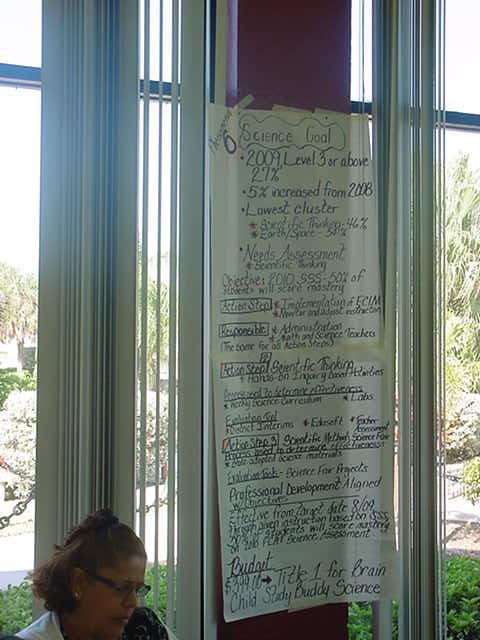 6
Science Goal
• 2009, Level 3 or above
27%
• 5% increased from 2008
• Lowest cluster
* Scientific Thinking - 46%
* Earth/Space -
• Needs Assessment
* Scientific Thinking
Objective: 2010 SSS-50% of
students will score mastery
Action Step * Implementation of ECIM
* Monitor and adjust instruction
Responsible * Administration
* Math and Science Teachers
(The same for all Action Steps)
Action Step 2 Scientific Thinking
* Hands-On Inquiry Based Activities
Process used to determine effectiveness
* Science Curriculum * Labs
Evaluation Tool
* District Interims * Edusoft * Teacher
Assessment
Action Step 3 Scientific Method, Science Fair
Process used to determine effectiveness
* State adopted science materials
Evaluation Tools - Science Fair Projects
Professional Development Aligned
w/Objectives
Effective from target date 8/09
through given instruction based on SSS,
50% of students will score mastery
on 2010 FCAT Science Assessment
Budget
→ Title 1 for Brain
Child Study Buddy Science